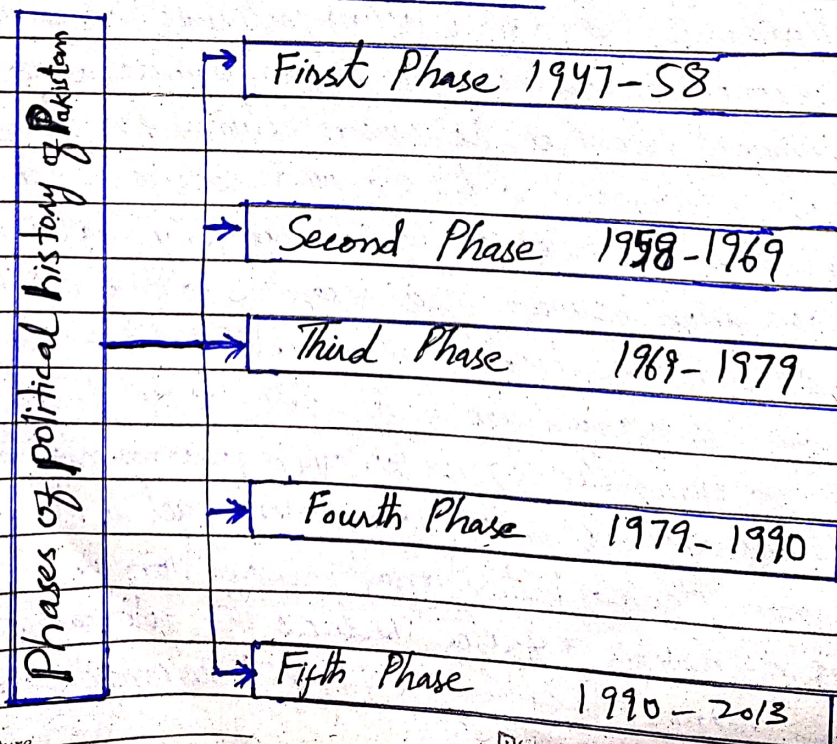 Phases of political history of Pakistan
First Phase 1947-58
Second Phase 1958-1969
Third Phase 1969-1979
Fourth Phase 1979-1990
Fifth Phase 1990-2013